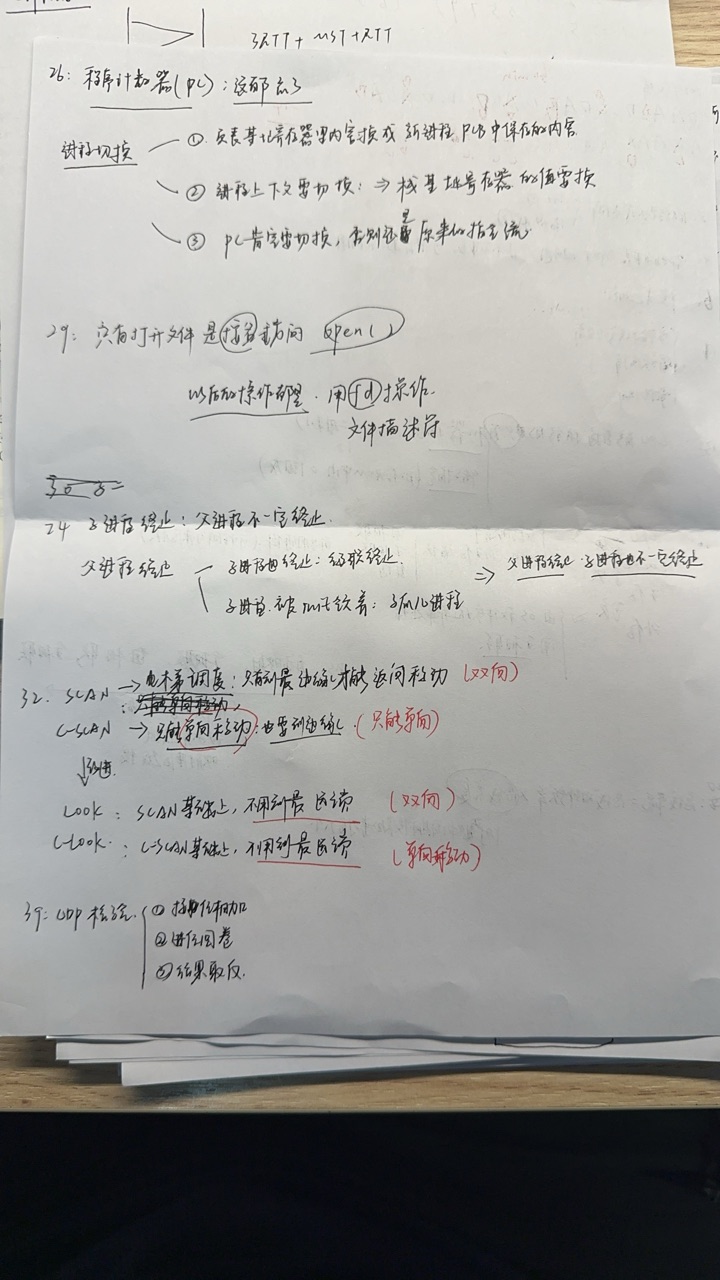 3RTT + MST + RTT
26: 程序计数器(PC): 没那点了
进程切换
① 页表基址寄存器里内容换成 新进程 PCB 中保存的内容
② 进程上下文要切换: ⇒ 栈基址寄存器 的值要换
③ PC肯定要切换, 否则还是原来的指令流.
29: 只有打开文件是按名访问 open()
以后的操作都是. 用fd操作.
文件描述符
24 子进程终止: 父进程不一定终止.
父进程终止
子进程也终止: 级联终止.
⇒ 父进程终止 子进程也不一定终止
子进程 被init收养: 孤儿进程
32. SCAN → 电梯调度: 只有到最边缘才能返回移动 (双向)
只能单向移动,
C-SCAN → 只能单向移动: 也要到边缘 (只能单向)
↓改进.
LOOK: SCAN基础上, 不用到最边缘 (双向)
C-LOOK: C-SCAN基础上, 不用到最边缘 (单向移动)
39: UDP检验.
① 按位相加
② 进位回卷
③ 结果取反.